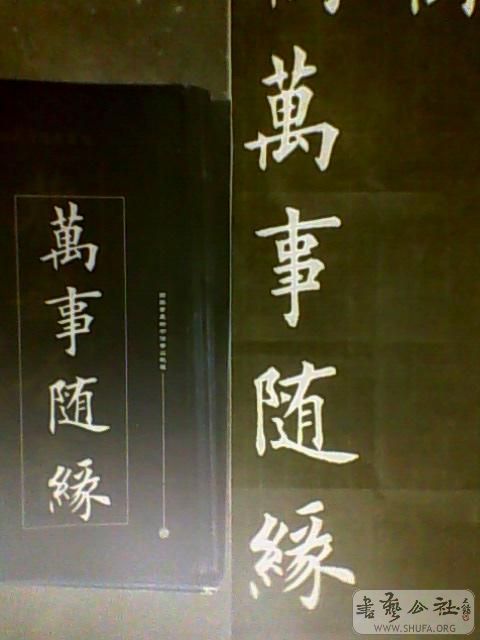 萬事随緣
萬事随緣
書藝公社
WWW.SHUFA.ORG